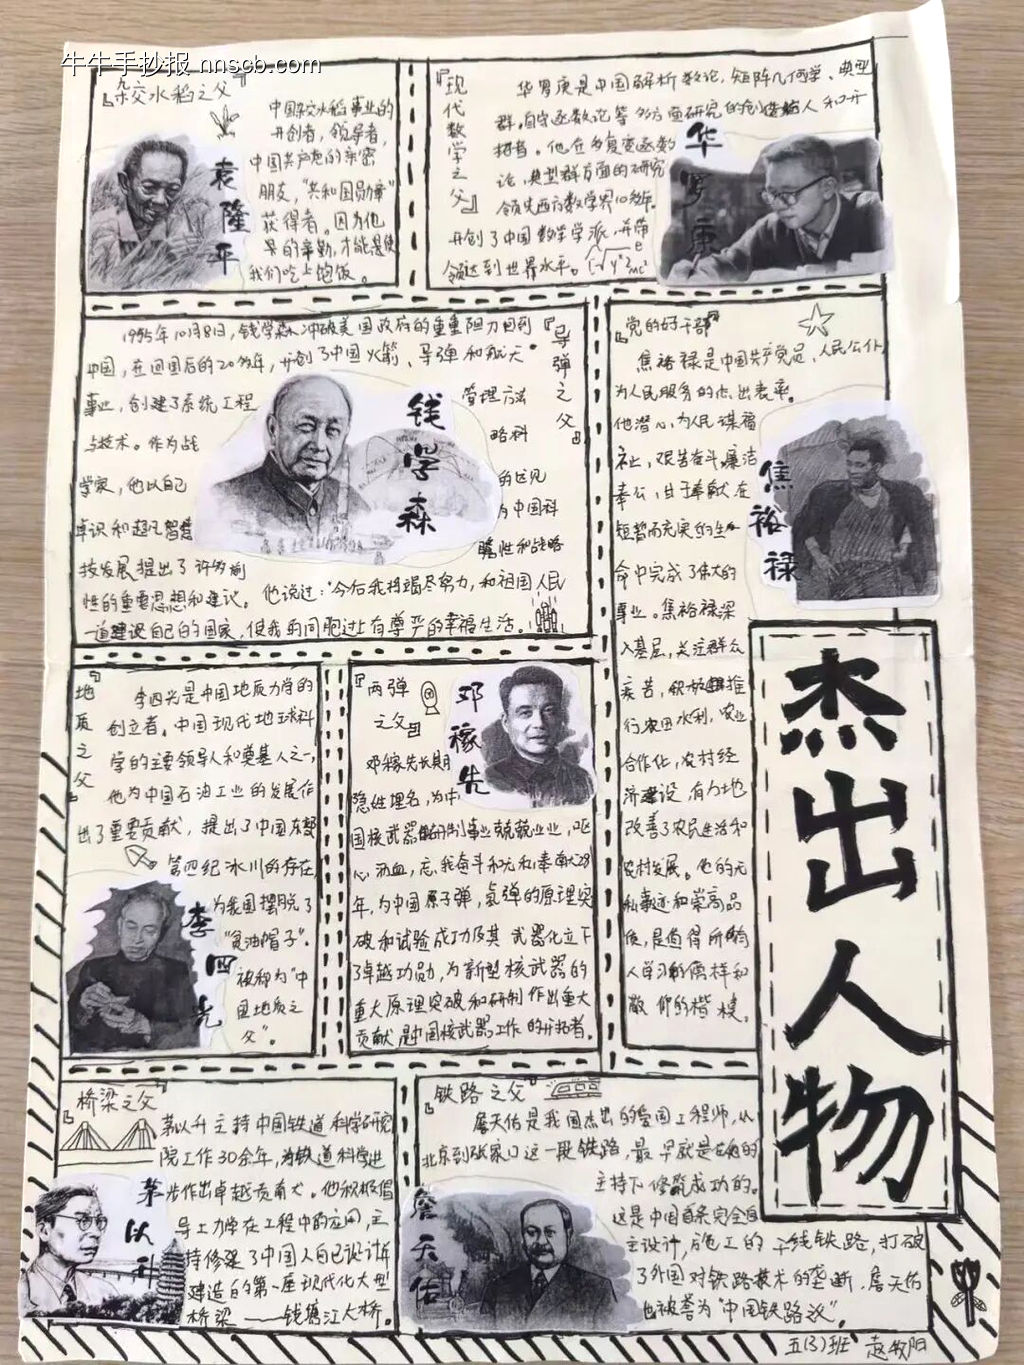 牛牛手抄报 nnscb.com
『杂交水稻之父』
中国杂交水稻事业的
开创者，领导者，
中国共产党的亲密
朋友，"共和国勋章"
获得者。因为他
的辛勤，才能是使
我们吃上饱饭。
袁隆平
『现代数学之父』
华罗庚是中国解析数论，矩阵几何学、典型
群，自守函数论等多方面研究的创始人和开
拓者。他在多复变函数
论，典型群方面的研究
领先西方数学界10多年，
开创了中国数学学派，并带
领达到世界水平。
华罗庚
『导弹之父』
1955年10月8日，钱学森冲破美国政府的重重阻力回到
中国，在回国后的20多年，开创了中国火箭、导弹和航天
事业，创建了系统工程
管理方法
与技术。作为战
略科
学家，他以自己
的远见
卓识和超凡智慧
为中国科
技发展提出了许多前
瞻性和战略
性的重要思想和建议。他说过："今后我将竭尽努力，和祖国人民
一道建设自己的国家，使我的同胞过上有尊严的幸福生活。
钱学森
『党的好干部』
焦裕禄是中国共产党员，人民公仆
为人民服务的杰出表率。
他潜心，为人民谋福
祉，艰苦奋斗，廉洁
奉公，甘于奉献，在
短暂而充实的生
命中完成了伟大的
事业。焦裕禄深
入基层，关注群众
疾苦，积极推
行农田水利，农业
合作化，农村经
济建设，有力地
改善了农民生活和
农村发展。他的无
私事迹和崇高品
质，是值得所有
人学习的榜样和
敬仰的楷模。
焦裕禄
杰出人物
『地质之父』
李四光是中国地质力学的
创立者。中国现代地球科
学的主要领导人和奠基人之一，
他为中国石油工业的发展作
出了重要贡献，提出了中国东部
第四纪冰川的存在，
为我国摆脱了
"贫油帽子"。
被称为"中
国地质之
父"。
李四光
『两弹
之父』
邓稼先长期
隐姓埋名，为中
国核武器研制事业兢兢业业，呕
心沥血，忘我奋斗和无私奉献28
年，为中国原子弹，氢弹的原理突
破和试验成功及其武器化立下
了卓越功勋，为新型核武器的
重大原理突破和研制作出重大
贡献是中国核武器工作的开拓者。
邓稼先
『桥梁之父』
茅以升主持中国铁道科学研究
院工作30余年，为铁道科学进
步作出卓越贡献。他积极倡
导土力学在工程中的应用，主
持修建了中国人自己设计并
建造的第一座现代化大型
桥梁——钱塘江大桥。
茅以升
『铁路之父』
詹天佑是我国杰出的爱国工程师，从
北京到张家口这一段铁路，最早就是在他的
主持下修筑成功的。
这是中国首条完全自
主设计，施工的干线铁路，打破
了外国对铁路技术的垄断，詹天佑
也被誉为"中国铁路之父"。
詹天佑
五(3)班